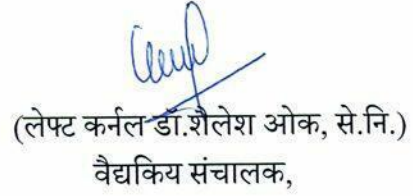 (लेफ्ट कर्नल डॉ.शैलेश ओक, से.नि.)
वैद्यकिय संचालक,